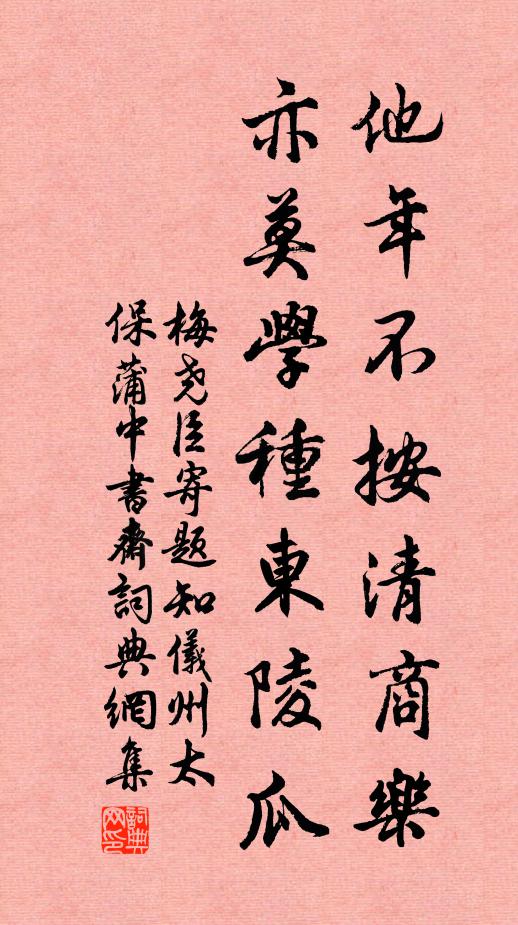 他年不按清商樂
亦莫學種東陵瓜
梅尧臣寄题知儀州太
保蒲中書齋詞典網集
詞典
网印